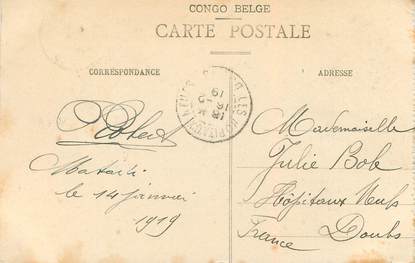 CONGO BELGE
CARTE POSTALE
CORRESPONDANCE
ADRESSE
Robert
Matadi
le 14 janvier
1919
Mademoiselle
Julie Bole
Hôpitaux Neufs
Doubs
France